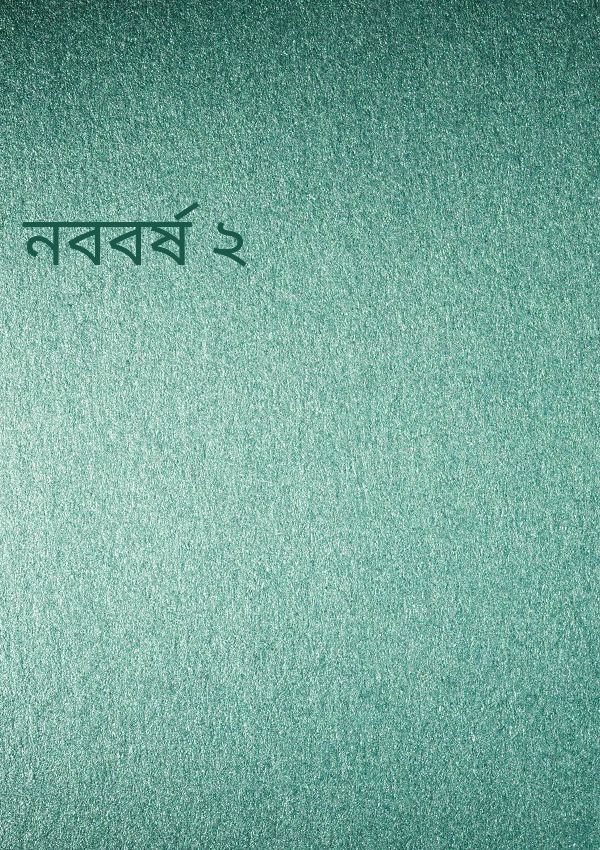 নববর্ষ ২